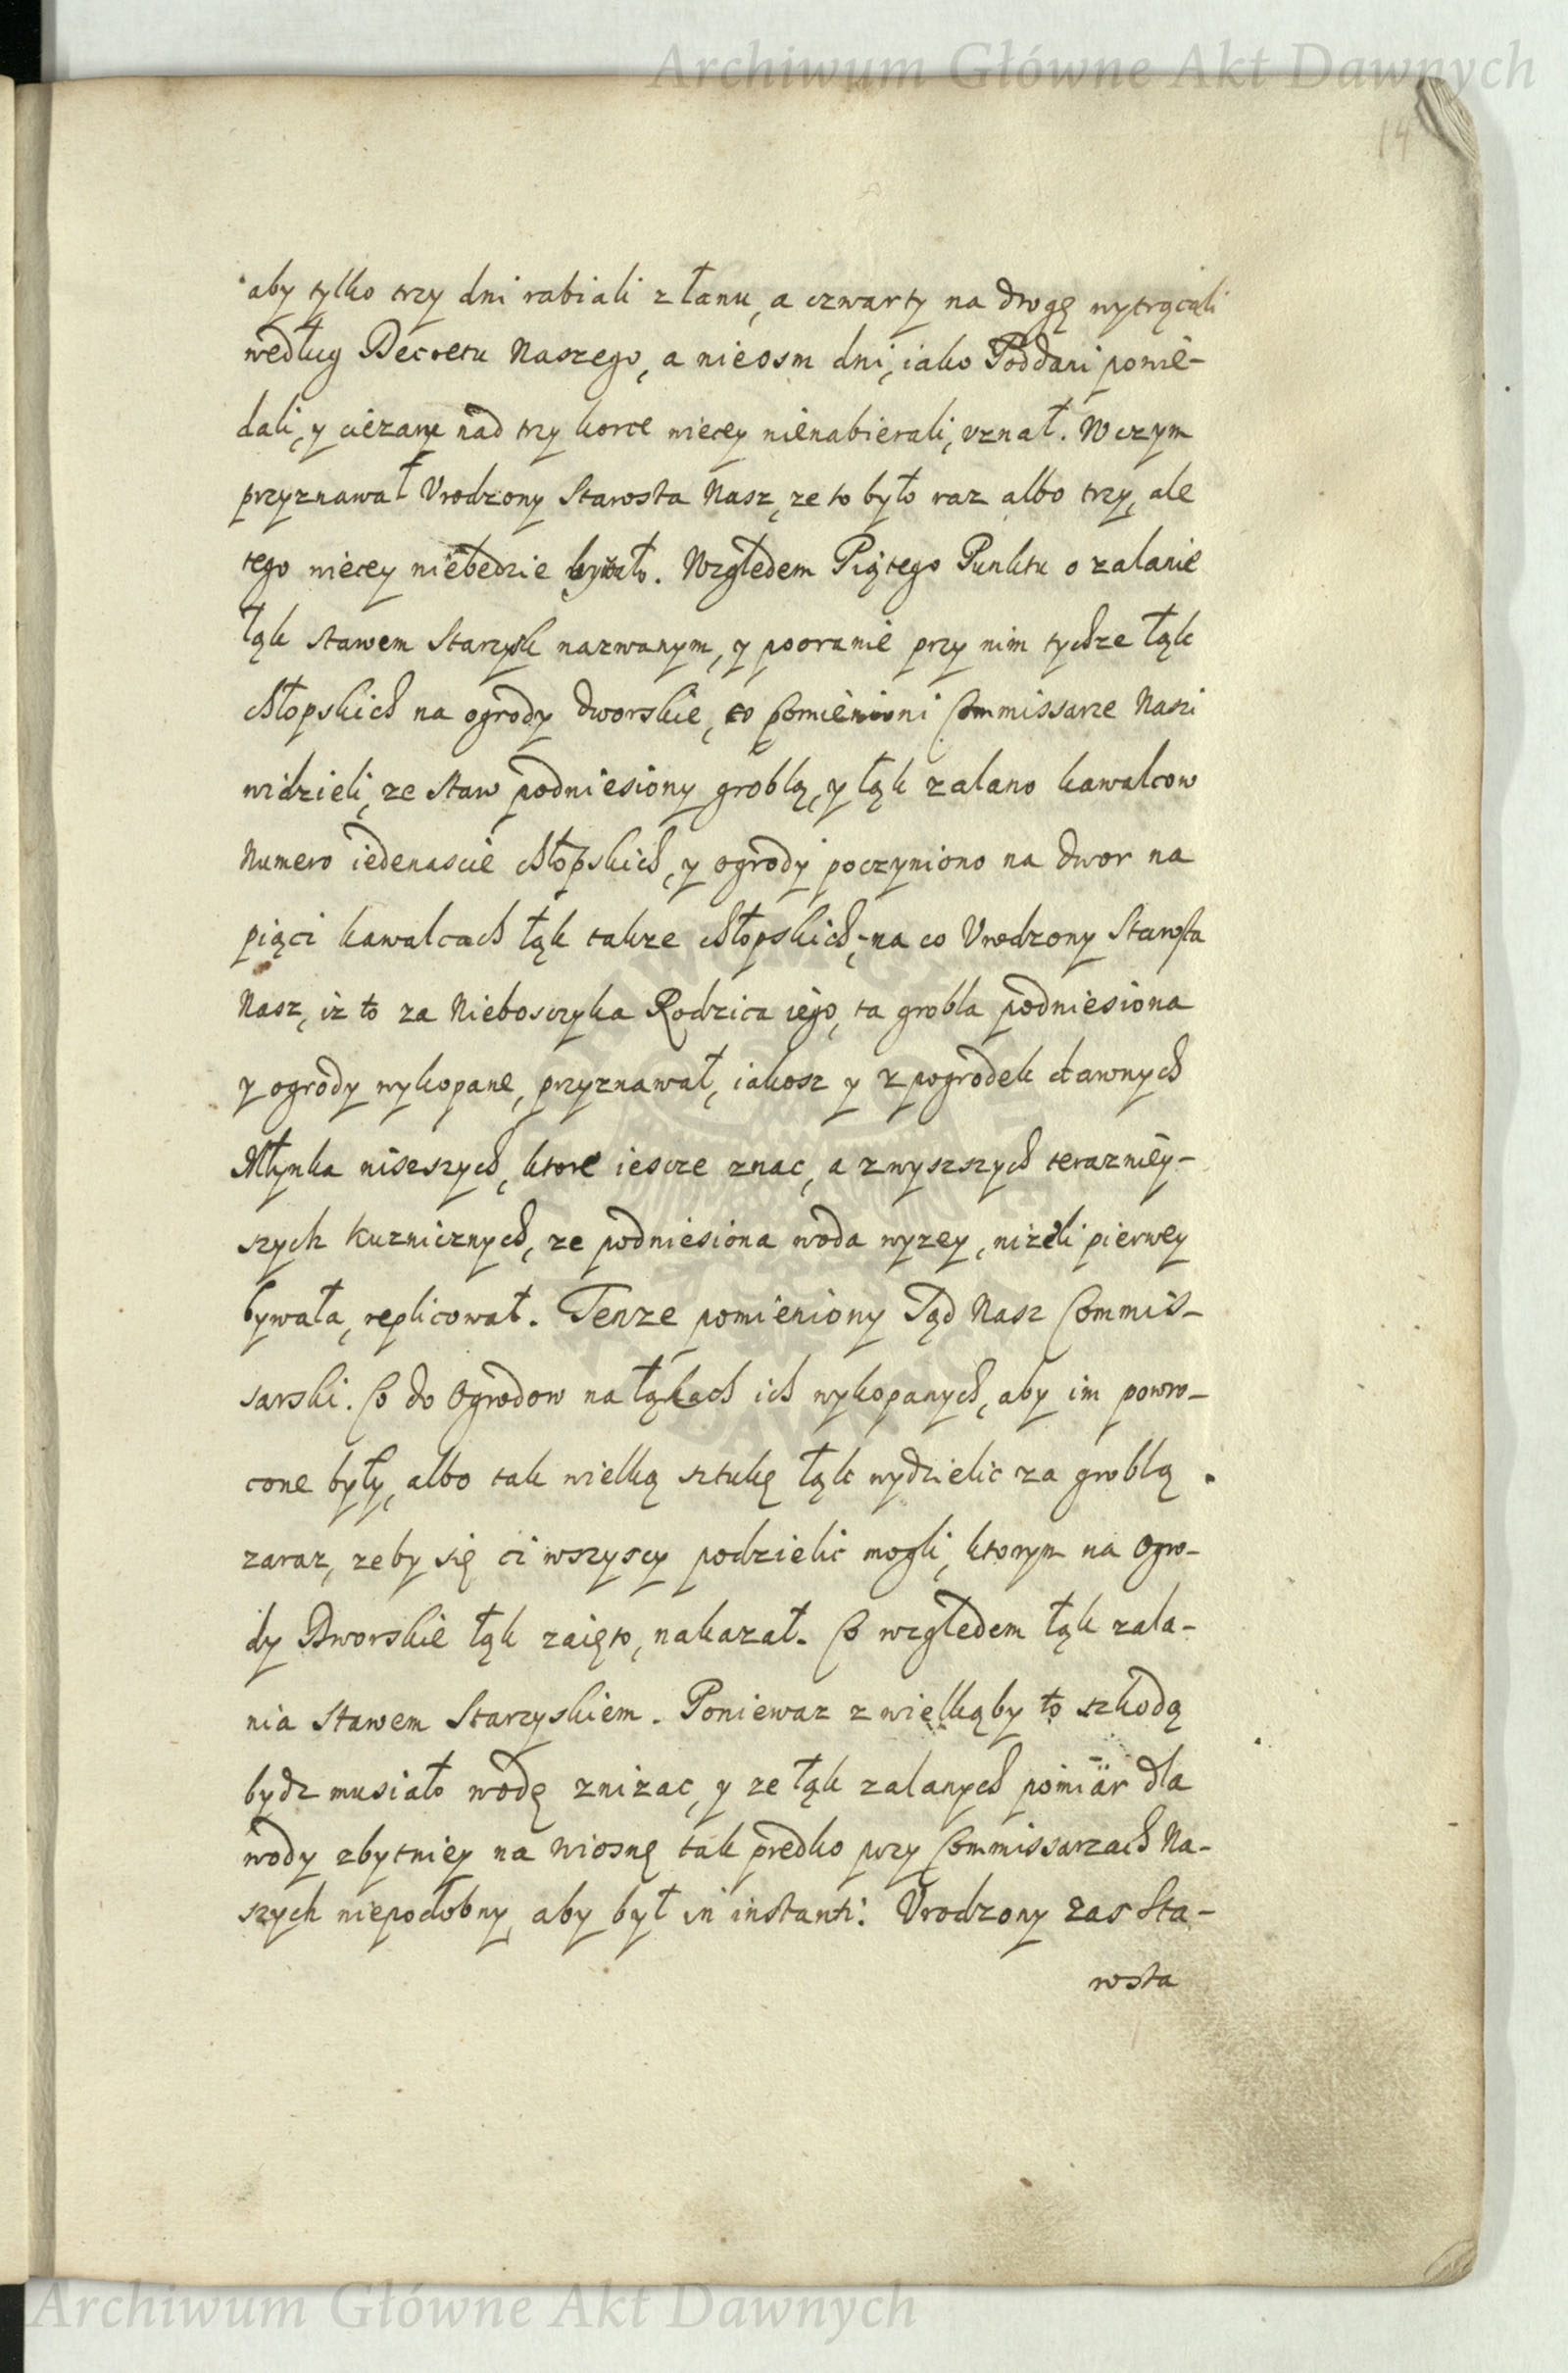 Archiwum Główne Akt Dawnych
14
aby tylko trzy dni rabiali z łanu, a czwarty na drogę wytrącali
według Decretu Naszego, a nieosm dni, iako Poddani powie-
dali, y cięzary nad trzy korce wiecey nienabierali, vznał. W czym
przyznawał Vrodzony Starosta Nasz, ze to było raz albo trzy, ale
tego wiecey niebedzie bywało. Względem Piątego Punktu o zalanie
łąk stawem Starzysk nazwanym, y pooranie przy nim tychze łąk
chłopskich na ogrody dworskie, to Pomienieni Commissarze Nasi
widzieli, ze staw podniesiony groblą, y łąk zalano kawalcow
Numero iedenascie chłopskich, y ogrody poczyniono na dwor na
piąci kawalcach łąk takze chłopskich, na co Vrodzony Starosta
Nasz, iz to za Nieboszczyka Rodzica iego, ta grobla podniesiona
y ogrody wykopane, przyznawał, iakosz y z pogrodek dawnych
Młynka niseszych, ktore iescze znac, a zwyszszych terazniey-
szych kuznicznych, ze podniesiona woda wyzey, nizeli pierwey
bywała, replicował. Tenze pomieniony Sąd Nasz Commis-
sarski. Co do Ogrodow na łąkach ich wykopanych, aby im powro-
cone były, albo tak wielką sztukę łąk wydzielic za groblą
zaraz, zeby się ci wszyscy podzielic mogli, ktorym na Ogro-
dy Dworskie łąk zaięto, nakazał. Co względem łąk zala-
nia stawem Starzyskiem. Poniewaz z wielkąby to szkodą
bydz musiało wodę znizac, y ze łąk zalanych pomiar dla
wody zbytniey na wiosnę tak prędko przy Commissarzach Na-
szych niepodobny, aby był in instanti. Vrodzony zas Sta-
rosta
Archiwum Główne Akt Dawnych